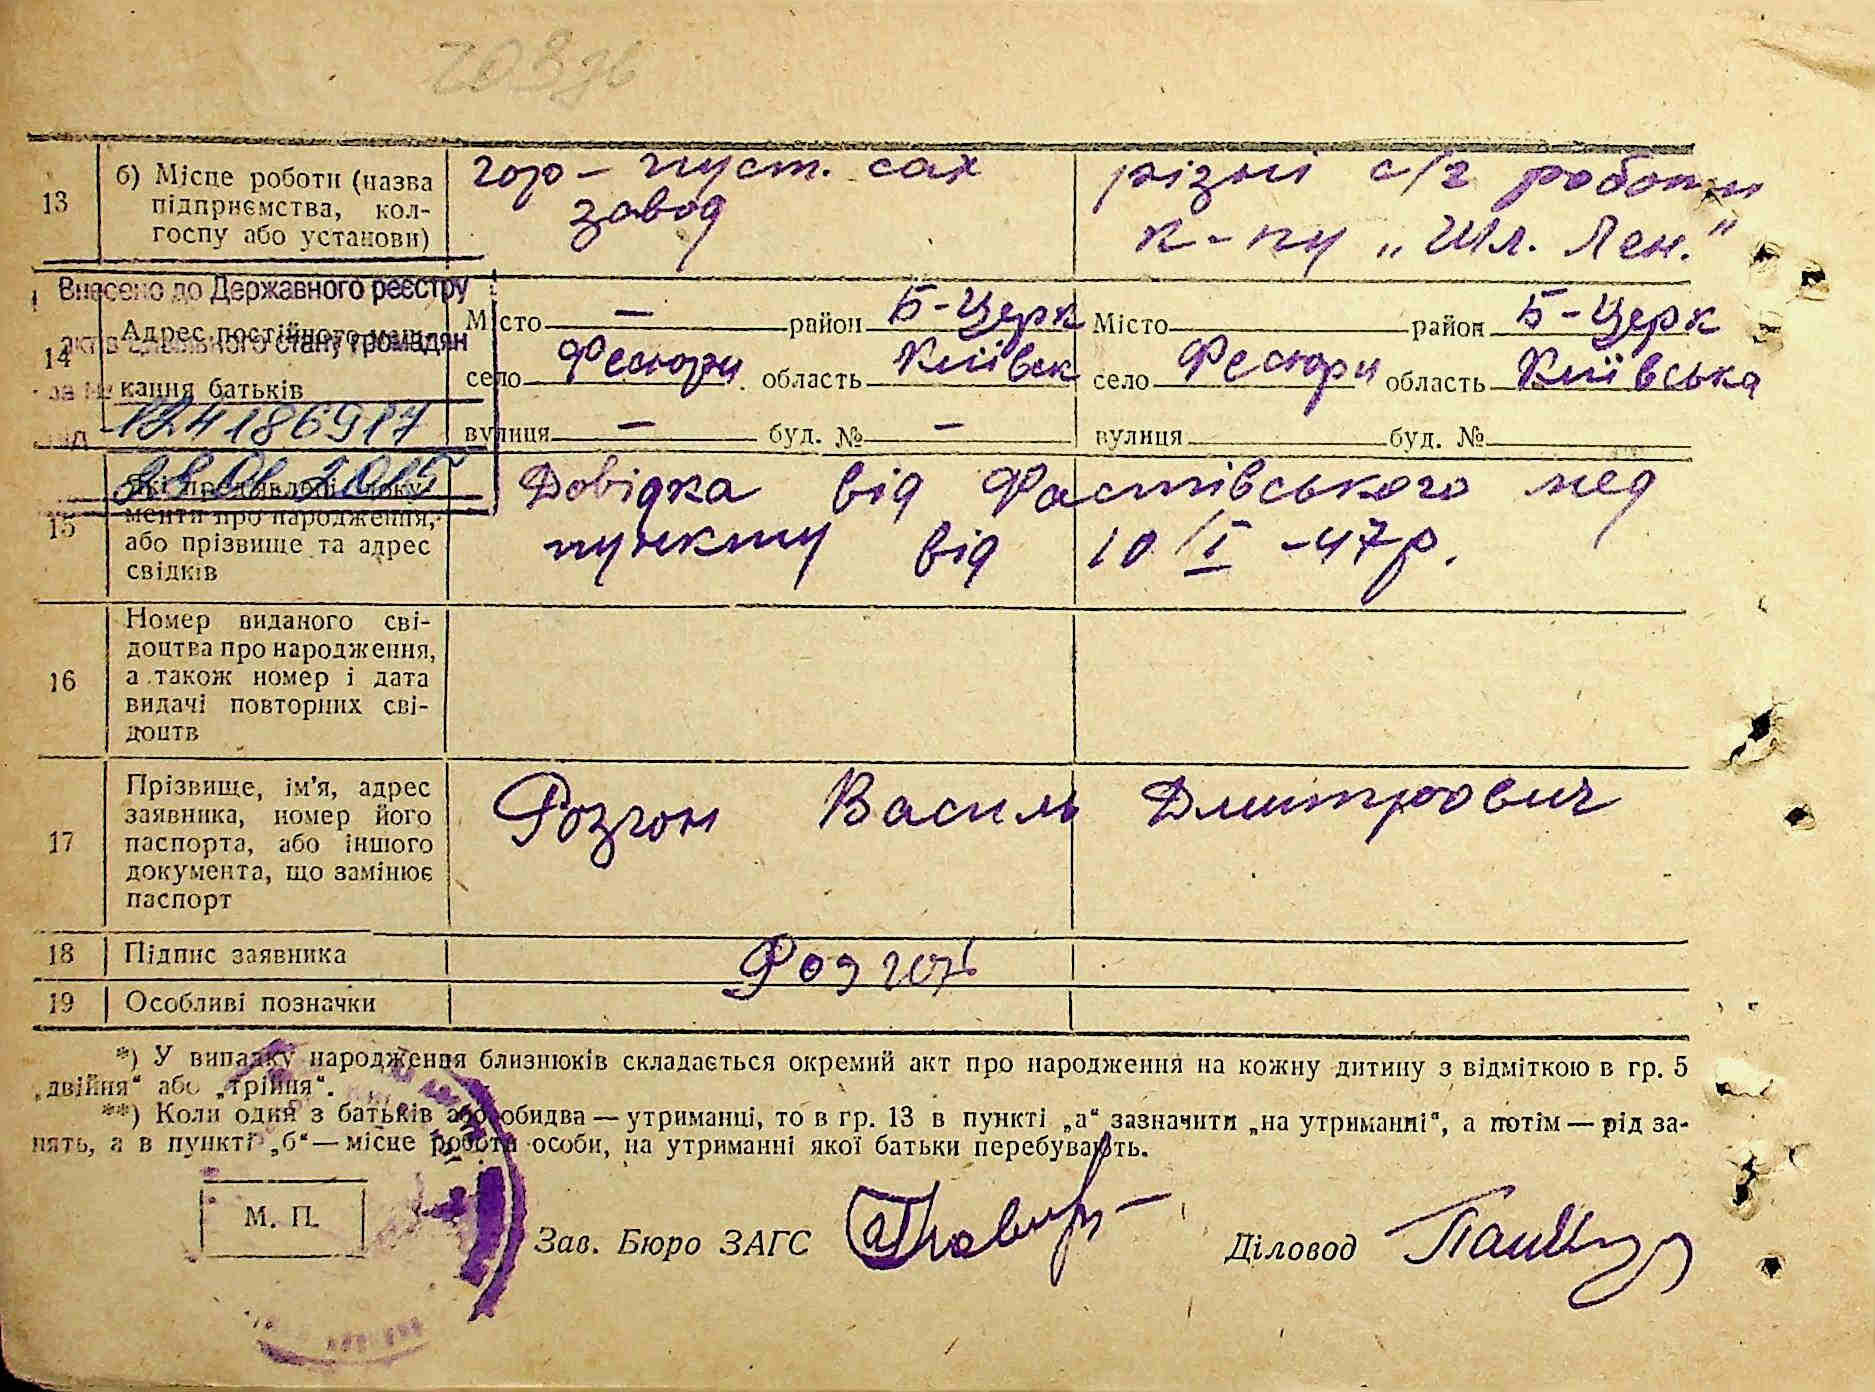 13 б) Місце роботи (назва підприємства, колгоспу або установи)
гор-пуст. сах завод
різні с/г роботи к-пу „Шл. Лен."
Внесено до Державного реєстру
актів цивільного стану громадян
за №
124186917
28.01.2015
14 Адрес постійного мешкання батьків
Місто — район Б-Церк
село Фесюри область Київськ
вулиця — буд. № —
Місто район Б-Церк
село Фесюри область Київська
вулиця буд. №
15 Які пред'явлені документи про народження, або прізвище та адрес свідків
Довідка від Фастівського мед
пункту від 10/I -47р.
16 Номер виданого свідоцтва про народження, а також номер і дата видачі повторних свідоцтв
17 Прізвище, ім'я, адрес заявника, номер його паспорта, або іншого документа, що замінює паспорт
Розгон Василь Дмитрович
18 Підпис заявника
Розгон
19 Особливі позначки
*) У випадку народження близнюків складається окремий акт про народження на кожну дитину з відміткою в гр. 5
„двійня“ або „трійня“.
**) Коли один з батьків або обидва — утриманці, то в гр. 13 в пункті „а“ зазначити „на утриманні“, а потім — рід за-
нять, а в пункті „б“ — місце роботи особи, на утриманні якої батьки перебувають.
М. П.
Зав. Бюро ЗАГС
Діловод